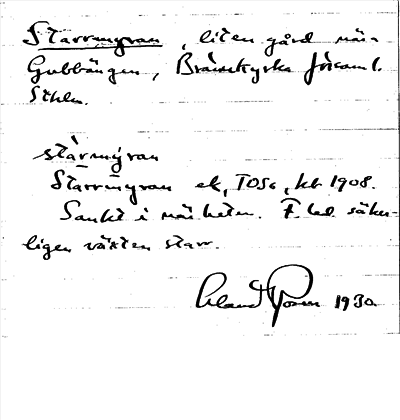 Starrmyran, liten gård nära
Gubbängen, Brännkyrka församl.
Sthlm.
stàrmýran
Starrmyran ek, TOSc, kb 1908.
Sankt i närheten. F. led. säker-
ligen växten starr.
1930